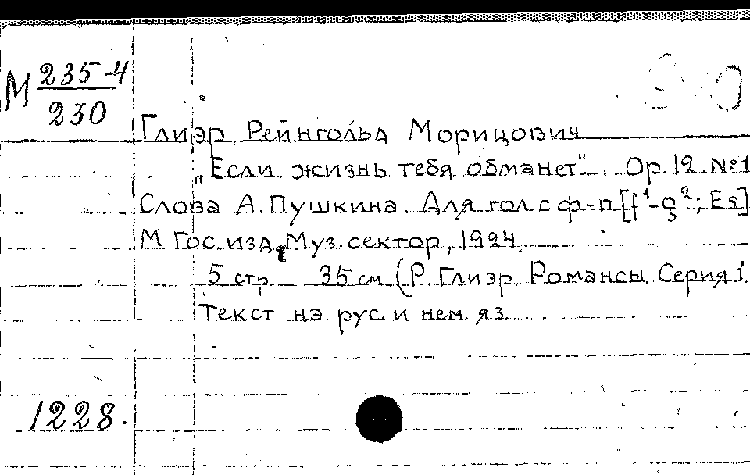 М 235-4
230
Глиэр Рейнгольд Морицович
„Если жизнь тебя обманет". Op. 12 №1
Слова А. Пушкина. Для гол с ф-п [f¹-g²; Es]
М Гос. изд. Муз. сектор, 1924.
5 стр 35 см (Р. Глиэр Романсы Серия 1.
Текст на рус и нем яз.
1228.